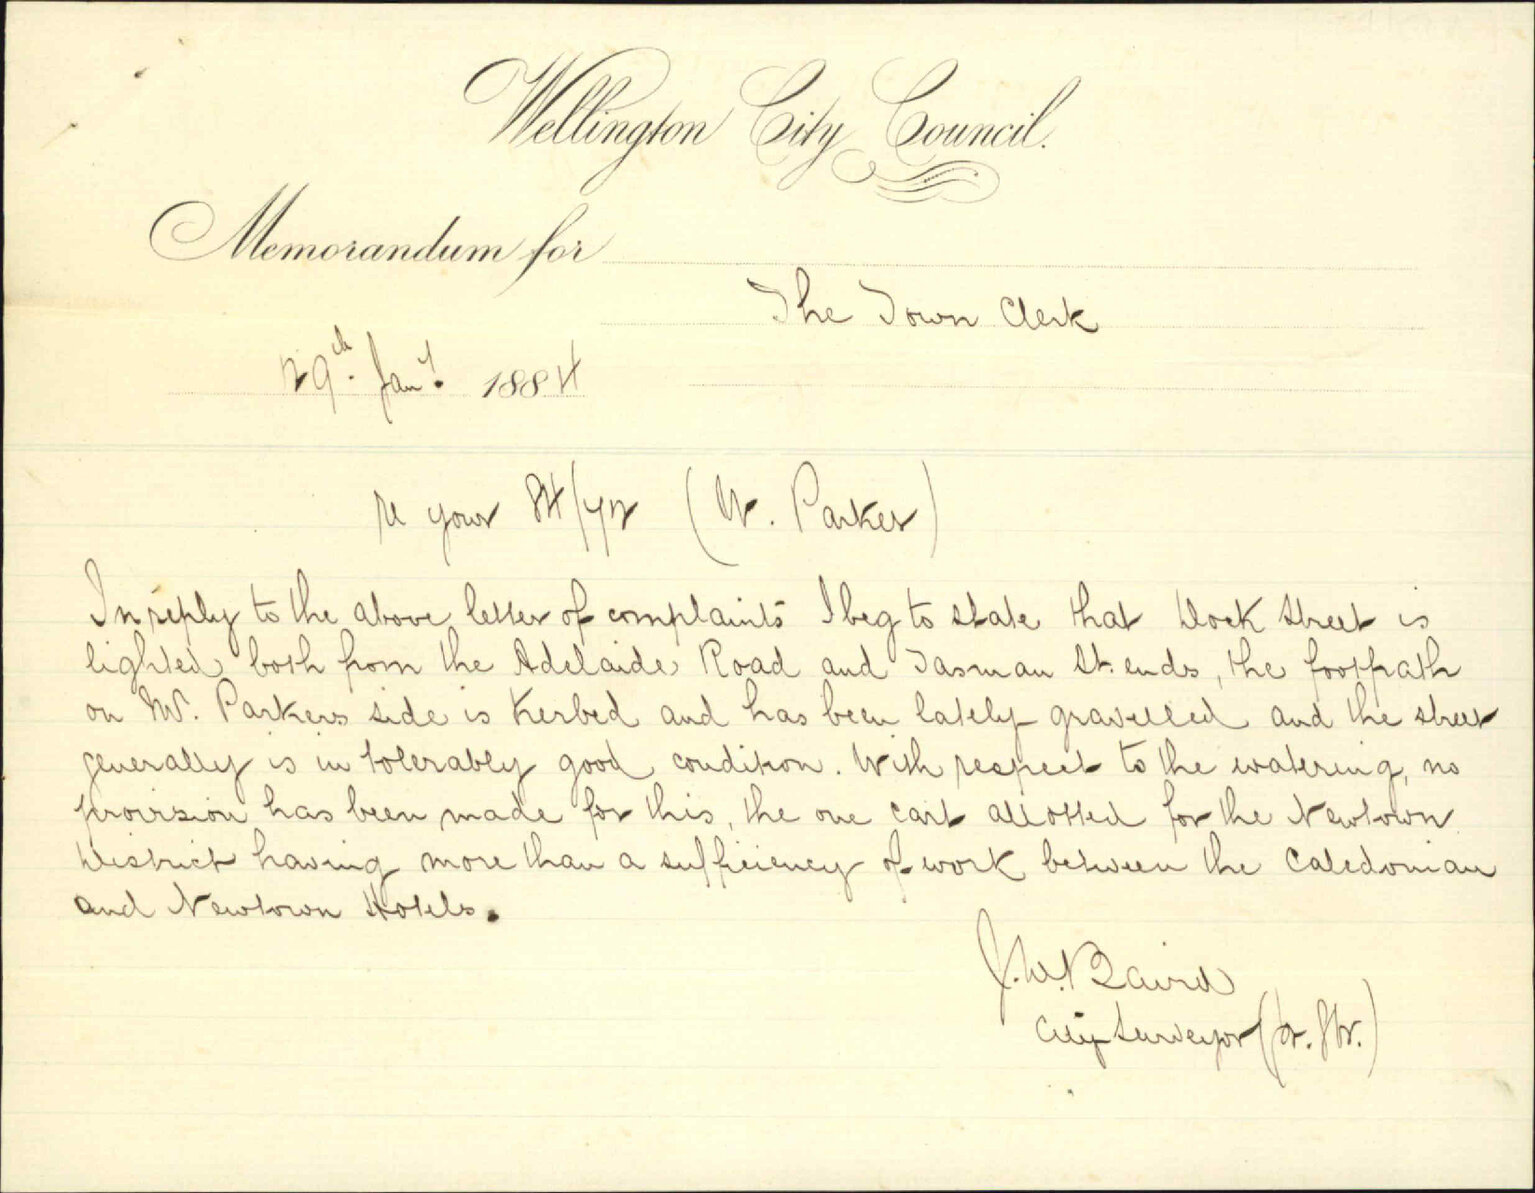 Wellington City Council.
Memorandum for
The Town Clerk
29th. Jany. 1884
re your 84/72 (W. Parker)
In reply to the above letter of complaints I beg to state that Dock Street is
lighted both from the Adelaide Road and Tasman St. ends, the footpath
on Mr. Parkers side is Kerbed and has been lately gravelled and the street
generally is in tolerably good condition. With respect to the watering, no
provision has been made for this, the one cart allotted for the Newtown
District having more than a sufficiency of work between the Caledonian
and Newtown Hotels.
J.W. Baird
City Surveyor